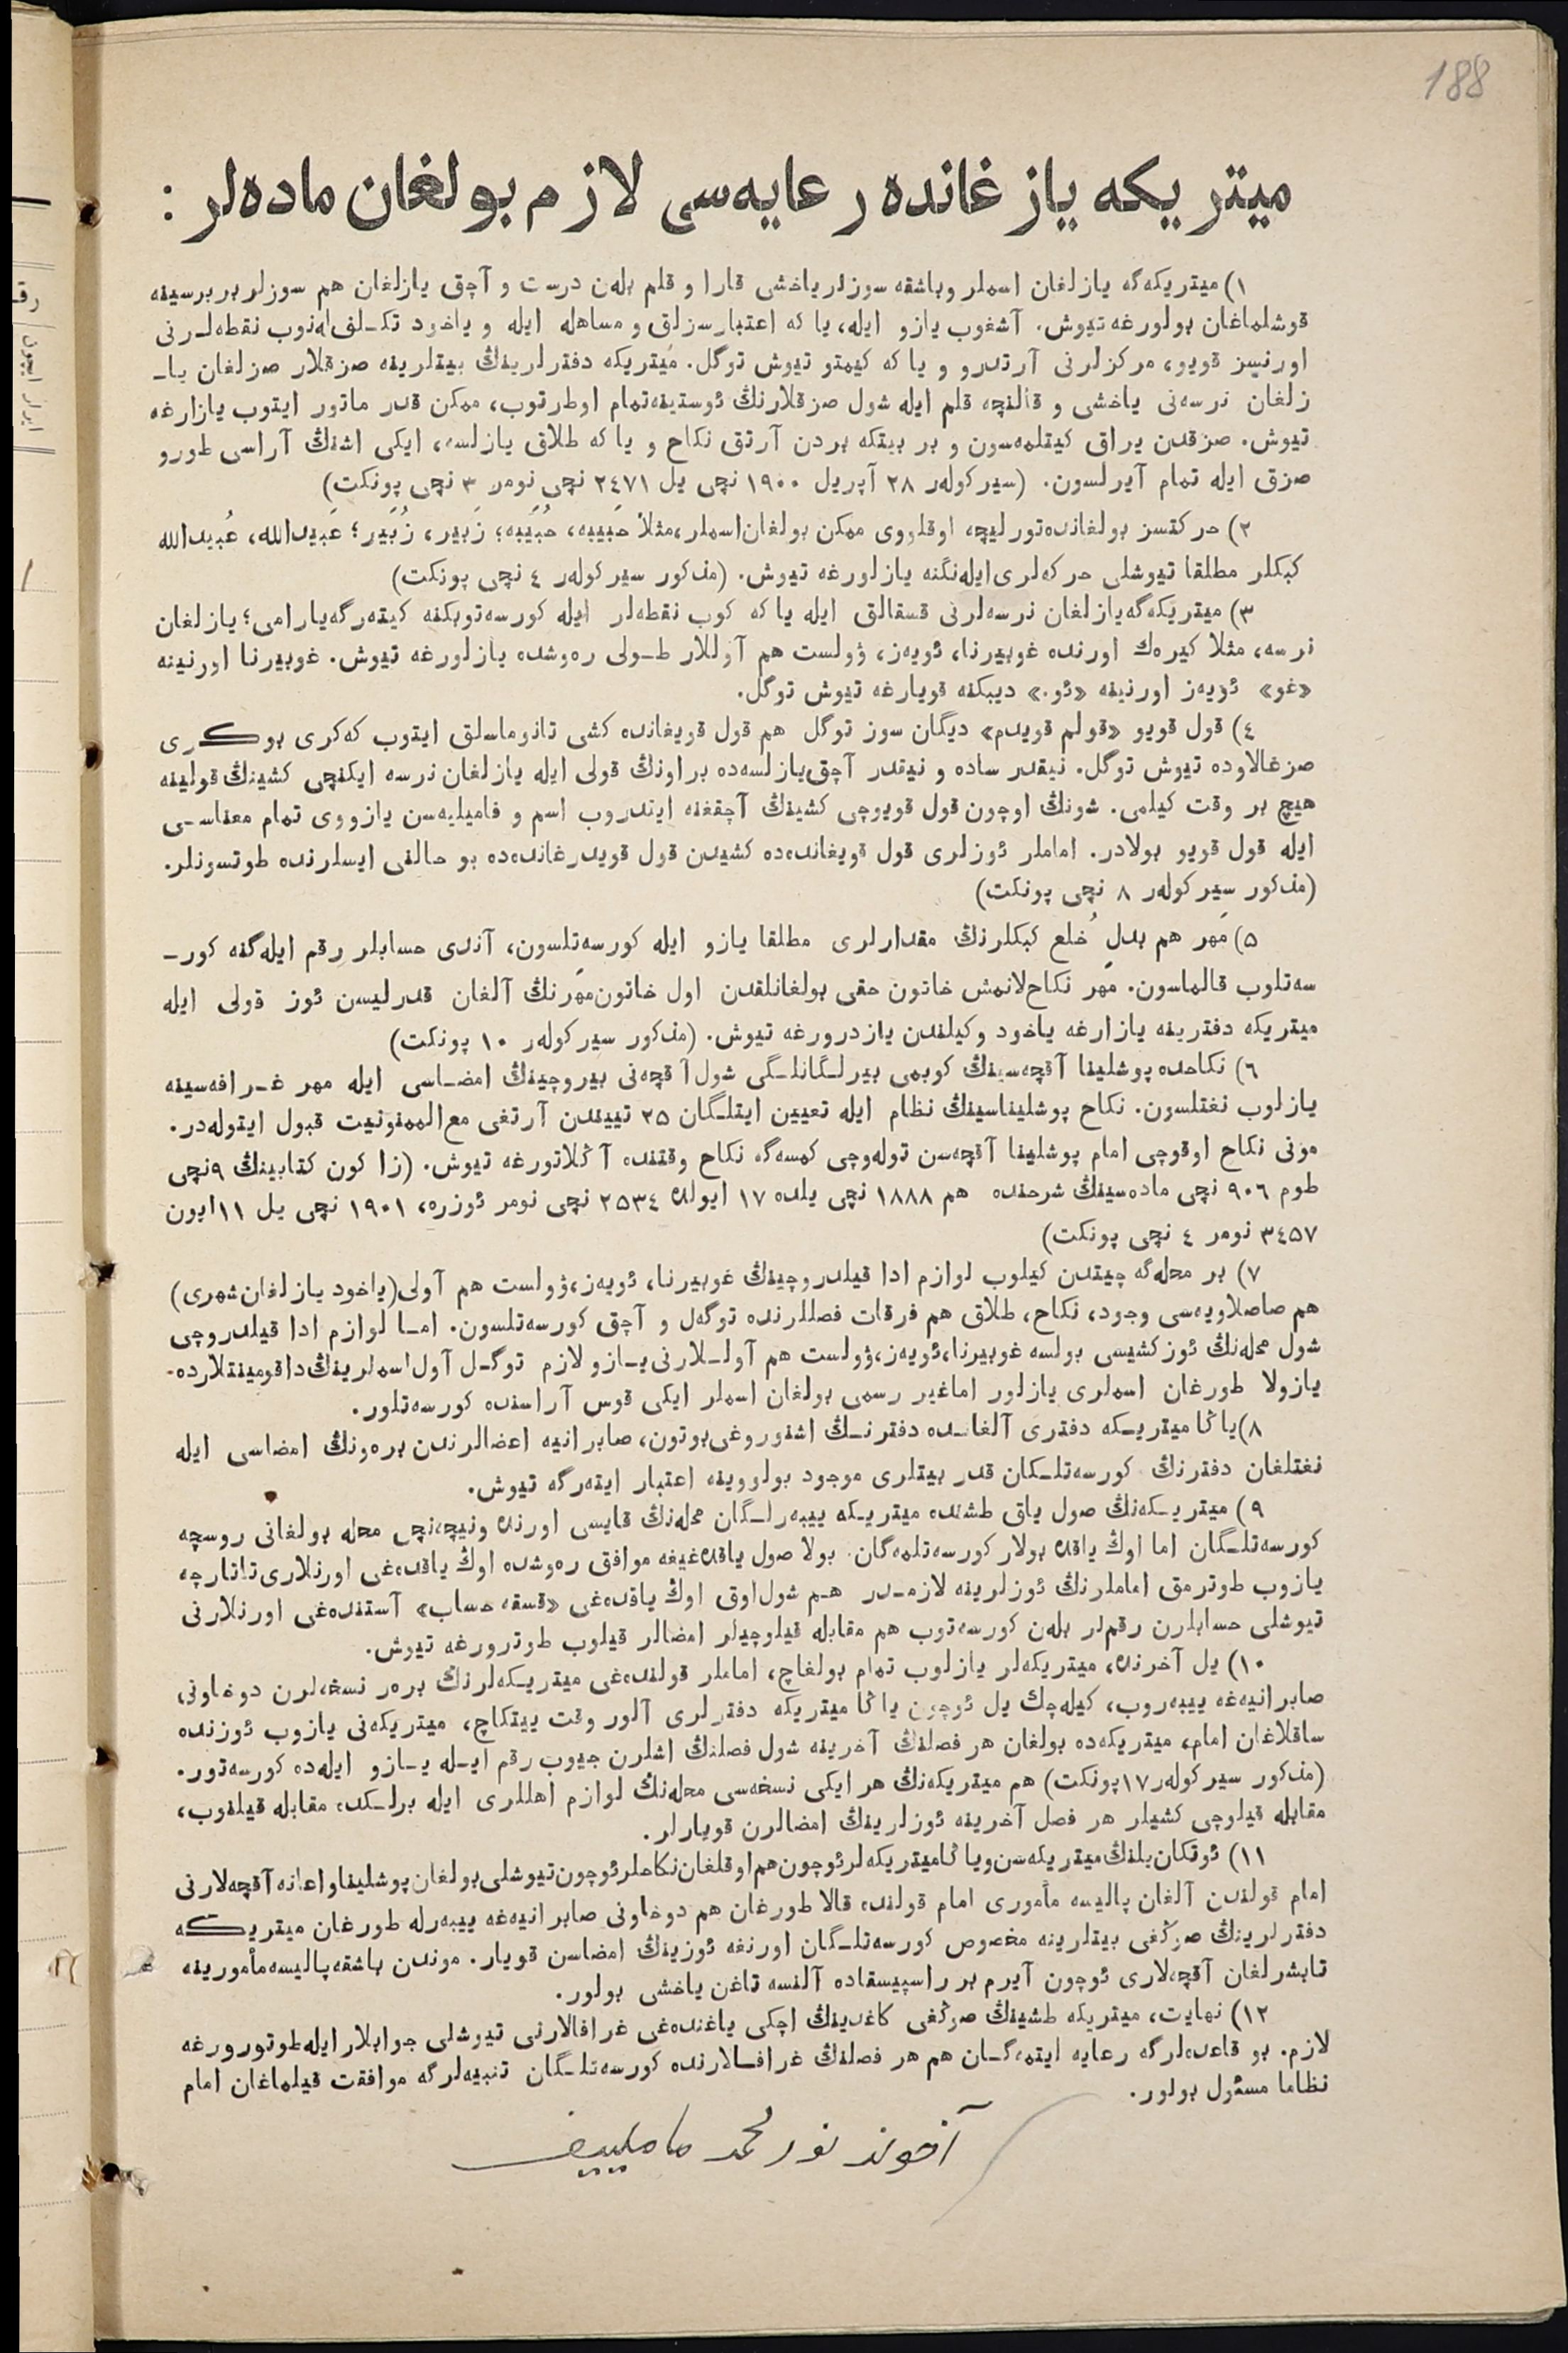 188
میتریكه یازغانده رعایه‌سی لازم بولغان ماده‌لر :
١) میتریكه‌گه یازلغان اسملر وباشقه سوزلر یاخشی قارا و قلم بله‌ن درست و آچق یازلغان هم سوزلر بر برسینه
قوشلماغان بولورغه تیوش. آشغوب یازو ایله، یا كه اعتبارسزلق و مساهله ایله و یاخود تكـلف‌له‌نوب نقطه‌لـرنی
اورنسز قویو، مركزلرنی آرتدرو و یا كه كیمتو تیوش توگل. میتریكه دفترلرینڭ بیتلرینه صزقلار صزلغان یا-
زلغان نرسه‌نی یاخشی و قالنچه قلم ایله شول صزقلارنڭ ئوستینه تمام اوطرتوب، ممكن قدر ماتور ایتوب یازارغه
تیوش. صزقدن یراق كیتلمه‌سون و بر بیتكه بردن آرتق نكاح و یا كه طلاق یازلسه، ایكی اشنڭ آراسی طورو
صزق ایله تمام آیرلسون. (سیركوله‌ر ٢٨ آپریل ١٩٠٠ نچی یل ٢٤٧١ نچی نومر ٣ نچی پونكت)
٢) حركتسز بولغانده تورلیچه اوقلووی ممكن بولغان اسملر، مثلاً حَبیبه، حُبَیبه؛ زَبیر، زُبَیر؛ عَبیدالله، عُبیدالله
كبكلر مطلقا تیوشلی حركه‌لری ایله‌نگنه یازلورغه تیوش. (مذكور سیركوله‌ر ٤ نچی پونكت)
٣) میتریكه‌گه یازلغان نرسه‌لرنی قسقالق ایله یا كه كوب نقطه‌لر ایله كورسه‌توبكنه كیته‌رگه یارامی؛ یازلغان
نرسه، مثلا كیره‌ك اورنده غوبیرنا، ئویه‌ز، ۋولست هم آوللار طـولی ره‌وشده یازلورغه تیوش. غوبیرنا اورنینه
«غو» ئویه‌ز اورنینه «ئو.» دیبكنه قویارغه تیوش توگل.
٤) قول قویو «قولم قویدم» دیگان سوز توگل هم قول قویغانده كشی تانوماسلق ایتوب كه‌كری بوكری
صزغالاوده تیوش توگل. نیقدر ساده و نیقدر آچق یازلسه‌ده براونڭ قولی ایله یازلغان نرسه ایكنچی كشینڭ قولینه
هیچ بر وقت كیلمی. شونڭ اوچون قول قویوچی كشینڭ آچقغنه ایتدروب اسم و فامیلیه‌سن یازووی تمام معناسـی
ایله قول قویو بولادر. اماملر ئوزلری قول قویغانده‌ده كشیدن قول قویدرغانده‌ده بو حالنی ایسلرنده طوتسونلر.
(مذكور سیركوله‌ر ٨ نچی پونكت)
٥) مَهر هم بدلِ خُلع كبكلرنڭ مقدارلری مطلقا یازو ایله كورسه‌تلسون، آندی حسابلر رقم ایله‌گنه كور-
سه‌تلوب قالماسون. مَهر نكاح‌لانمش خاتون حقی بولغانلقدن اول خاتون مهرنڭ آلغان قدرلیسن ئوز قولی ایله
میتریكه دفترینه یازارغه یاخود وكیلندن یازدرورغه تیوش. (مذكور سیركوله‌ر ١٠ پونكت)
٦) نكاحده پوشلینا آقچه‌سینڭ كوبمی بیرلـگانلـگی شول آقچه‌نی بیروچینڭ امضـاسی ایله مهر غـرافه‌سینه
یازلوب نغتلسون. نكاح پوشلیناسینڭ نظام ایله تعیین ایتلـگان ٢٥ تییندن آرتغی مع‌الممنونیت قبول ایتوله‌در.
مونی نكاح اوقوچی امام پوشلینا آقچه‌سن توله‌وچی كمسه‌گه نكاح وقتنده آڭلاتورغه تیوش. (زاكون كتابینڭ ٩نچی
طوم ٩٠٦ نچی ماده‌سینڭ شرحنده هم ١٨٨٨ نچی یلده ١٧ ایولده ٢٥٣٤ نچی نومر ئوزره، ١٩٠١ نچی یل ١١ ایون
٣٤٥٧ نومر ٤ نچی پونكت)
٧) بر محله‌گه چیتدن كیلوب لوازم ادا قیلدروچینڭ غوبیرنا، ئویه‌ز، ۋولست هم آولی (یاخود یازلغان شهری)
هم صاصلاویه‌سی وجود، نكاح، طلاق هم فرقات فصللرنده توگه‌ل و آچق كورسه‌تلسون. امـا لوازم ادا قیلدروچی
شول محله‌نڭ ئوز كشیسی بولسه غوبیرنا، ئویه‌ز، ۋولست هم آولـلارنی یـازو لازم توگـل آول اسملرینڭ داقومینتلارده-
یازولا طورغان اسملری یازلور اماغیر رسمی بولغان اسملر ایكی قوس آراسنده كورسه‌تلور.
٨) یاڭا میتریـكه دفتری آلغانـده دفترنـڭ اشنوروغی بوتون، صابرانیه اعضالرندن بره‌ونڭ امضاسی ایله
نغتلغان دفترنڭ كورسه‌تلـكان قدر بیتلری موجود بولووینه اعتبار ایته‌رگه تیوش.
٩) میتریـكه‌نڭ صول یاق طشنده میتریـكه ییبه‌رلـگان محله‌نڭ قایسی اورنده ونیچه‌نچی محله بولغانی روسچه
كورسه‌تلـگان اما اوڭ یاقده بولار كورسه‌تلمه‌گان. بولا صول یاقده‌غیغه موافق ره‌وشده اوڭ یاقده‌غی اورنلاری تاتارچه
یازوب طوترمق اماملرنڭ ئوزلرینه لازمـدر هـم شول‌اوق اوڭ یاقده‌غی «قسقه حساب» آستنده‌غی اورنلارنی
تیوشلی حسابلرن رقم‌لر بله‌ن كورسه‌توب هم مقابله قیلوچیلر امضالر قیلوب طوترورغه تیوش.
١٠) یل آخرنده، میتریكه‌لر یازلوب تمام بولغاچ، اماملر قولنده‌غی میتریـكه‌لرنڭ بره‌ر نسخه‌لرن دوخاونی
صابرانیه‌غه ییبه‌روب، كیله‌چك یل ئوچون یاڭا میتریكه دفترلری آلور وقت ییتكاچ، میتریكه‌نی یازوب ئوزنده
ساقلاغان امام، میتریكه‌ده بولغان هر فصلنڭ آخرینه شول فصلنڭ اشلرن جیوب رقم ایـله یـازو ایله‌ده كورسه‌تور.
(مذكور سیركوله‌ر ١٧ پونكت) هم میتریكه‌نڭ هر ایكی نسخه‌سی محله‌نڭ لوازم اهللری ایله برلـكده مقابله قیلنوب،
مقابله قیلوچی كشیلر هر فصل آخرینه ئوزلرینڭ امضالرن قویارلر.
١١) ئوتكان یلنڭ میتریكه‌سن ویاڭا میتریكه‌لر ئوچون هم اوقلغان نكاحلر ئوچون تیوشلی بولغان پوشلینا و اعانه آقچه‌لارنی
امام قولندن آلغان پالیسه مأموری امام قولنده قالا طورغان هم دوخاونی صابرانیه‌غه ییبه‌رله طورغان میتریكه
دفترلرینڭ صوڭغی بیتلرینه مخصوص كورسه‌تلـگان اورنغه ئوزینڭ امضاسن قویار. موندن باشقه پالیسه مأمورینه
تابشرلغان آقچه‌لاری ئوچون آیرم بر راسپیسقاده آلنسه تاغن یاخشی بولور.
١٢) نهایت، میتریكه طشینڭ صوڭغی كاغدینڭ اچكی یاغنده‌غی غرافالارنی تیوشلی جوابلار ایله طوتورورغه
لازم. بو قاعده‌لرگه رعایه ایتمه‌گـان هم هر فصلنڭ غرافـالارنده كورسه‌تلـگان تنبیه‌لرگه موافقت قیلماغان امام
نظاما مسئول بولور.
آخوند نور محمد ماملییف